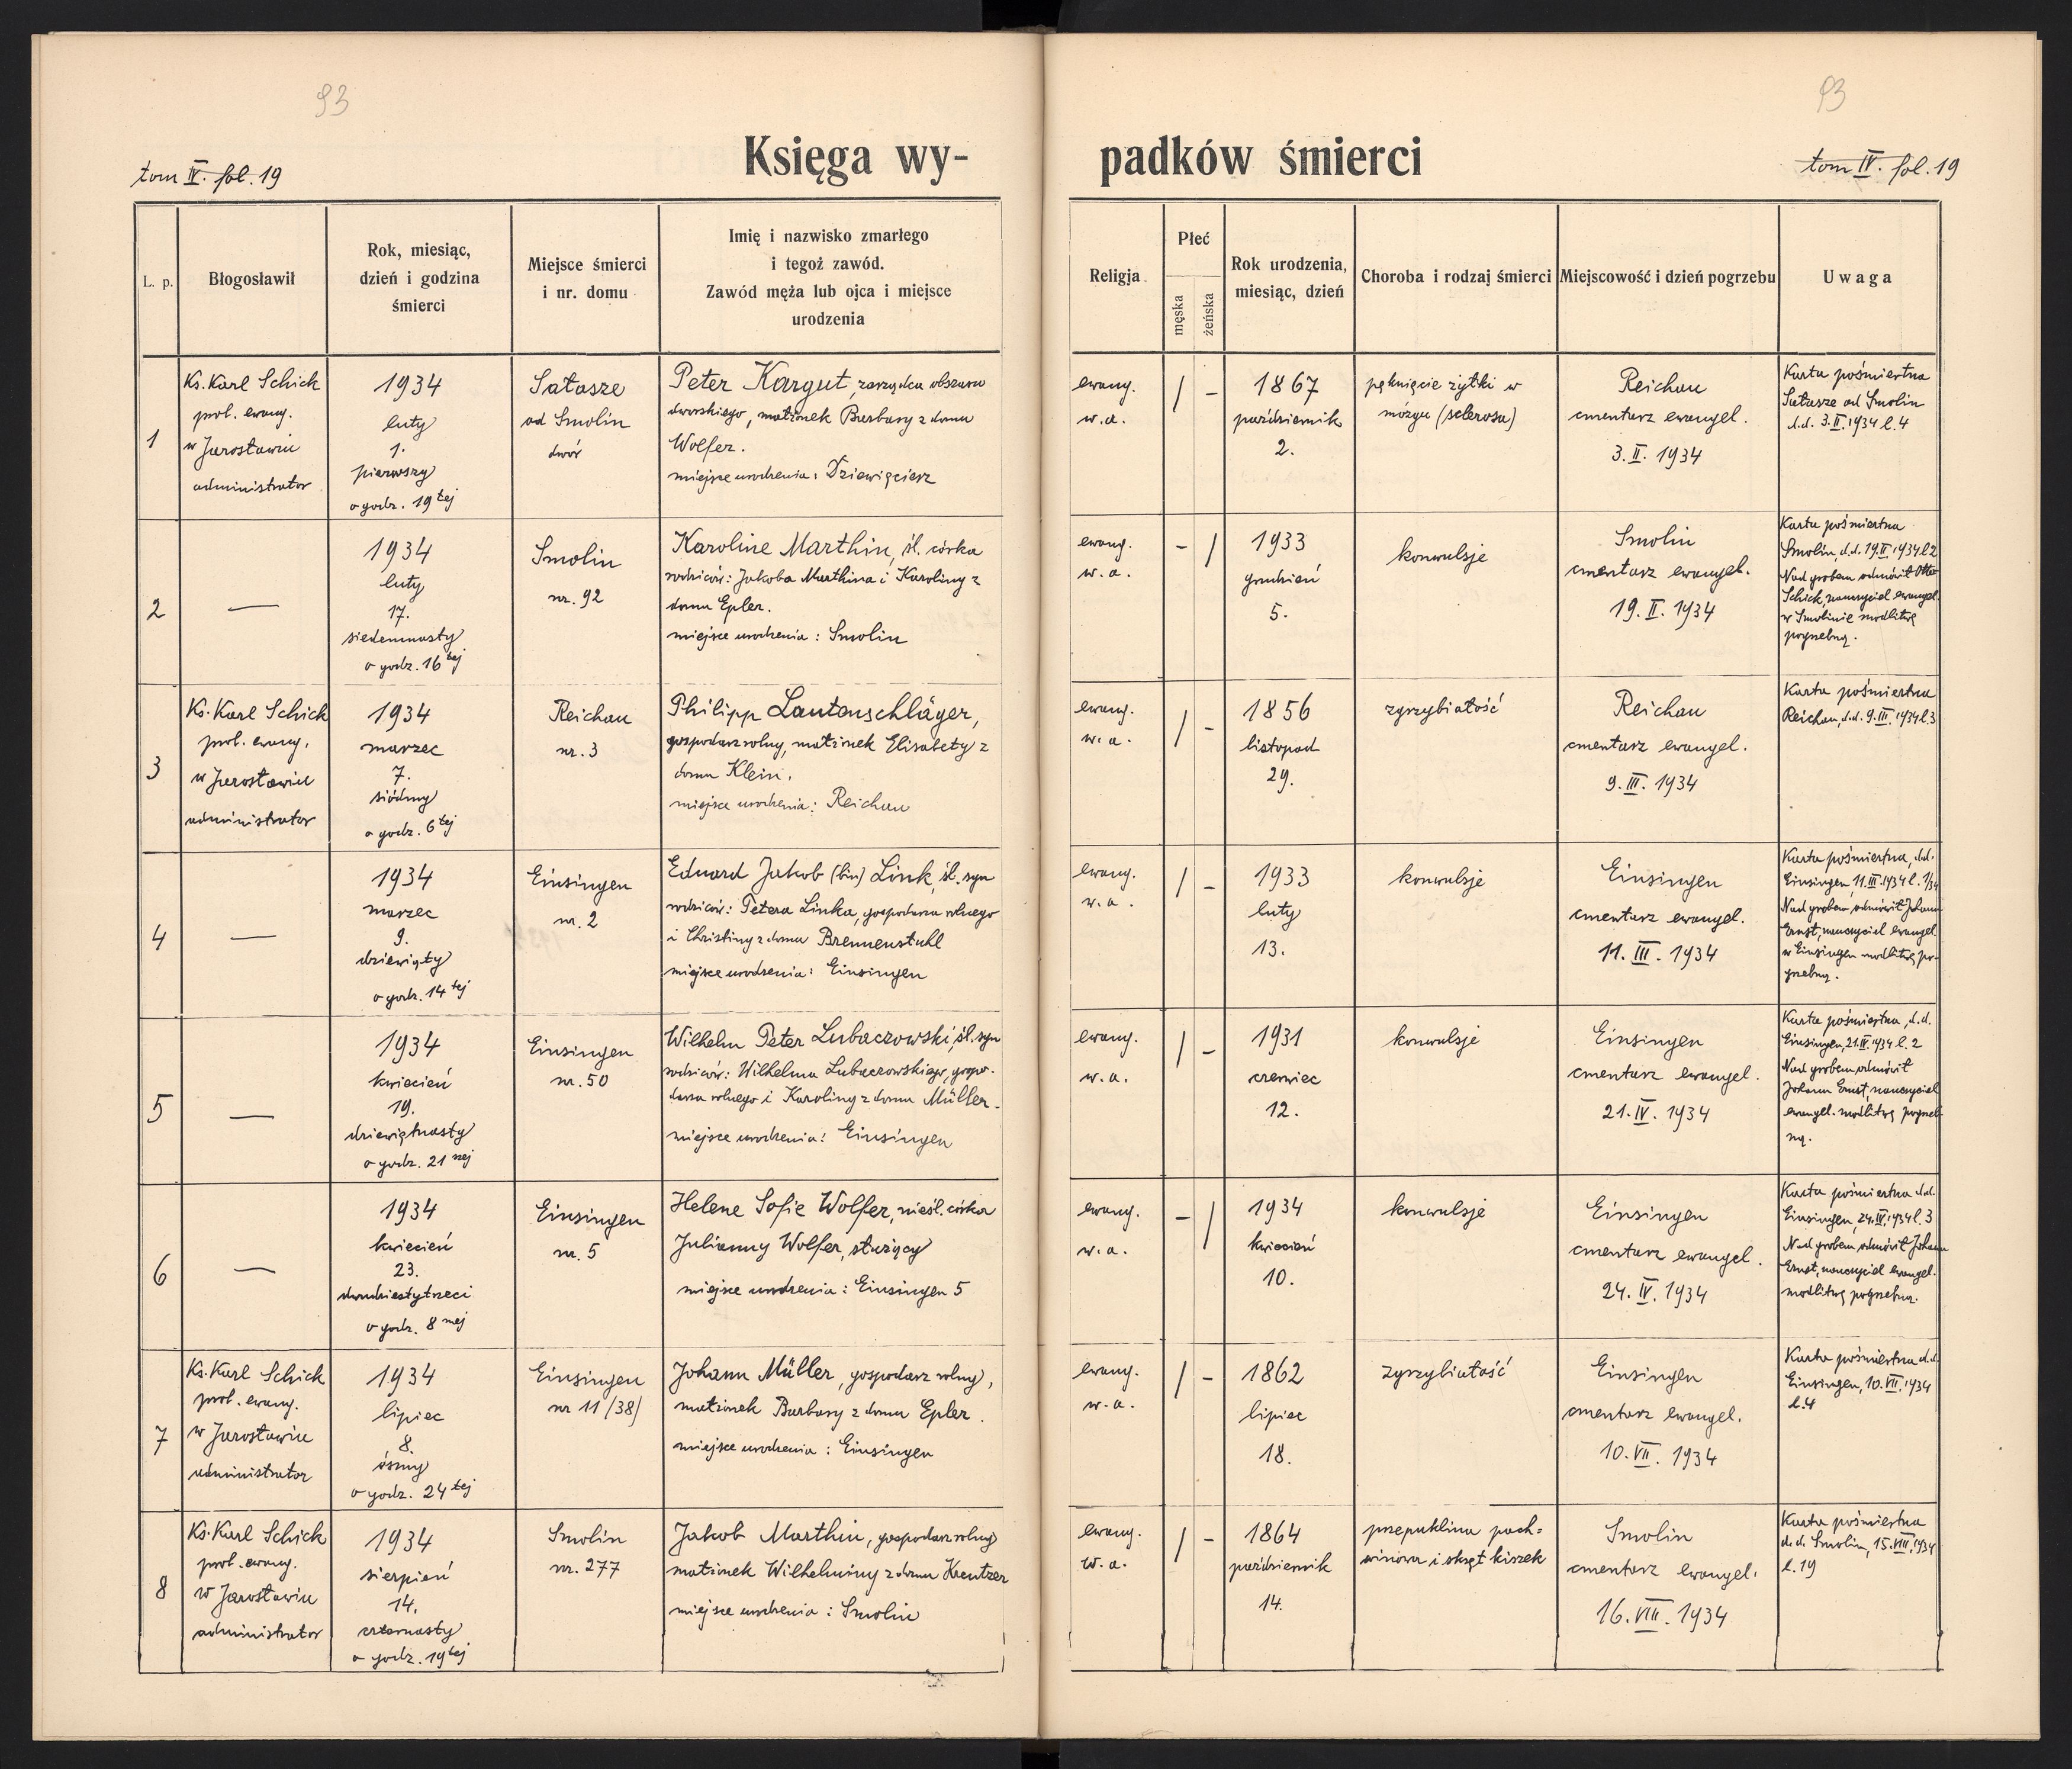 93
93
Księga wy-
padków śmierci
tom IV. fol. 19
tom IV. fol. 19
L. p.
Błogosławił
Rok, miesiąc,
dzień i godzina
śmierci
Miejsce śmierci
i nr. domu
Imię i nazwisko zmarłego
i tegoż zawód.
Zawód męża lub ojca i miejsce
urodzenia
Religja
Płeć
męska
żeńska
Rok urodzenia,
miesiąc, dzień
Choroba i rodzaj śmierci
Miejscowość i dzień pogrzebu
Uwaga
1
Ks. Karl Schick
prob. ewang.
w Jarosławiu
administrator
1934
luty
1.
pierwszy
o godz. 19tej
Sałasze
ad Smolin
dwór
Peter Kargut, zarządca obszaru
dworskiego, małżonek Barbary z domu
Wolfer.
miejsce urodzenia: Dziewięcierz
ewang.
w. a.
/ -
1867
październik
2.
pęknięcie żyłki w
mózgu (sclerosa)
Reichau
cmentarz ewangel.
3. II. 1934
Karta pośmiertna
Sałasze ad Smolin
d.d. 3. II. 1934 l. 4
2
—
1934
luty
17.
siedemnasty
o godz. 16tej
Smolin
nr. 92
Karoline Marthin, śl. córka
rodziców: Jakoba Marthina i Karoliny z
domu Epler.
miejsce urodzenia: Smolin
ewang.
w. a.
- /
1933
grudzień
5.
konwulsje
Smolin
cmentarz ewangel.
19. II. 1934
Karta pośmiertna
Smolin, d.d. 19. II. 1934 l. 2
Nad grobem odmówił Otto
Schick, nauczyciel ewangel.
w Smolinie modlitwę
pogrzebną.
3
Ks. Karl Schick
prob. ewang.
w Jarosławiu
administrator
1934
marzec
7.
siódmy
o godz. 6tej
Reichau
nr. 3
Philipp Lautenschläger,
gospodarz rolny, małżonek Elisabety z
domu Klein.
miejsce urodzenia: Reichau
ewang.
w. a.
/ -
1856
listopad
29.
zgrzybiałość
Reichau
cmentarz ewangel.
9. III. 1934
Karta pośmiertna
Reichau, d.d. 9. III. 1934 l. 3
4
—
1934
marzec
9.
dziewiąty
o godz. 14tej
Einsingen
nr. 2
Eduard Jakob (bin) Link, śl. syn
rodziców: Petera Linka, gospodarza rolnego
i Christiny z domu Brennenstuhl
miejsce urodzenia: Einsingen
ewang.
w. a.
/ -
1933
luty
13.
konwulsje
Einsingen
cmentarz ewangel.
11. III. 1934
Karta pośmiertna, d.d.
Einsingen, 11. III. 1934 l. 1/34
Nad grobem odmówił Johann
Ernst, nauczyciel ewangel.
w Einsingen modlitwę po-
grzebną.
5
—
1934
kwiecień
19.
dziewiętnasty
o godz. 21szej
Einsingen
nr. 50
Wilhelm Peter Lubaczowski, śl. syn
rodziców: Wilhelma Lubaczowskiego, gospo-
darza rolnego i Karoliny z domu Müller.
miejsce urodzenia: Einsingen
ewang.
w. a.
/ -
1931
czerwiec
12.
konwulsje
Einsingen
cmentarz ewangel.
21. IV. 1934
Karta pośmiertna, d.d.
Einsingen, 21. IV. 1934 l. 2
Nad grobem odmówił
Johann Ernst, nauczyciel
ewangel. modlitwę pogrzeb-
ną.
6
—
1934
kwiecień
23.
dwudziestytrzeci
o godz. 8mej
Einsingen
nr. 5
Helene Sofie Wolfer, nieśl. córka
Julianny Wolfer, służący
miejsce urodzenia: Einsingen 5
ewang.
w. a.
- /
1934
kwiecień
10.
konwulsje
Einsingen
cmentarz ewangel.
24. IV. 1934
Karta pośmiertna d.d.
Einsingen, 24. IV. 1934 l. 3
Nad grobem odmówił Johann
Ernst, nauczyciel ewangel.
modlitwę pogrzebną.
7
Ks. Karl Schick
prob. ewang.
w Jarosławiu
administrator
1934
lipiec
8.
ósmy
o godz. 24tej
Einsingen
nr 11 /38/
Johann Müller, gospodarz rolny,
małżonek Barbary z domu Epler.
miejsce urodzenia: Einsingen
ewang.
w. a.
/ -
1862
lipiec
18.
zgrzybiałość
Einsingen
cmentarz ewangel.
10. VII. 1934
Karta pośmiertna d.d.
Einsingen, 10. VII. 1934
l. 4
8
Ks. Karl Schick
prob. ewang.
w Jarosławiu
administrator
1934
sierpień
14.
czternasty
o godz. 19tej
Smolin
nr. 277
Jakob Marthin, gospodarz rolny
małżonek Wilhelminy z domu Kreutzer
miejsce urodzenia: Smolin
ewang.
w. a.
/ -
1864
październik
14.
przepuklina pach=
winowa i skręt kiszek
Smolin
cmentarz ewangel.
16. VIII. 1934
Karta pośmiertna
d.d. Smolin, 15. VIII. 1934
l. 19